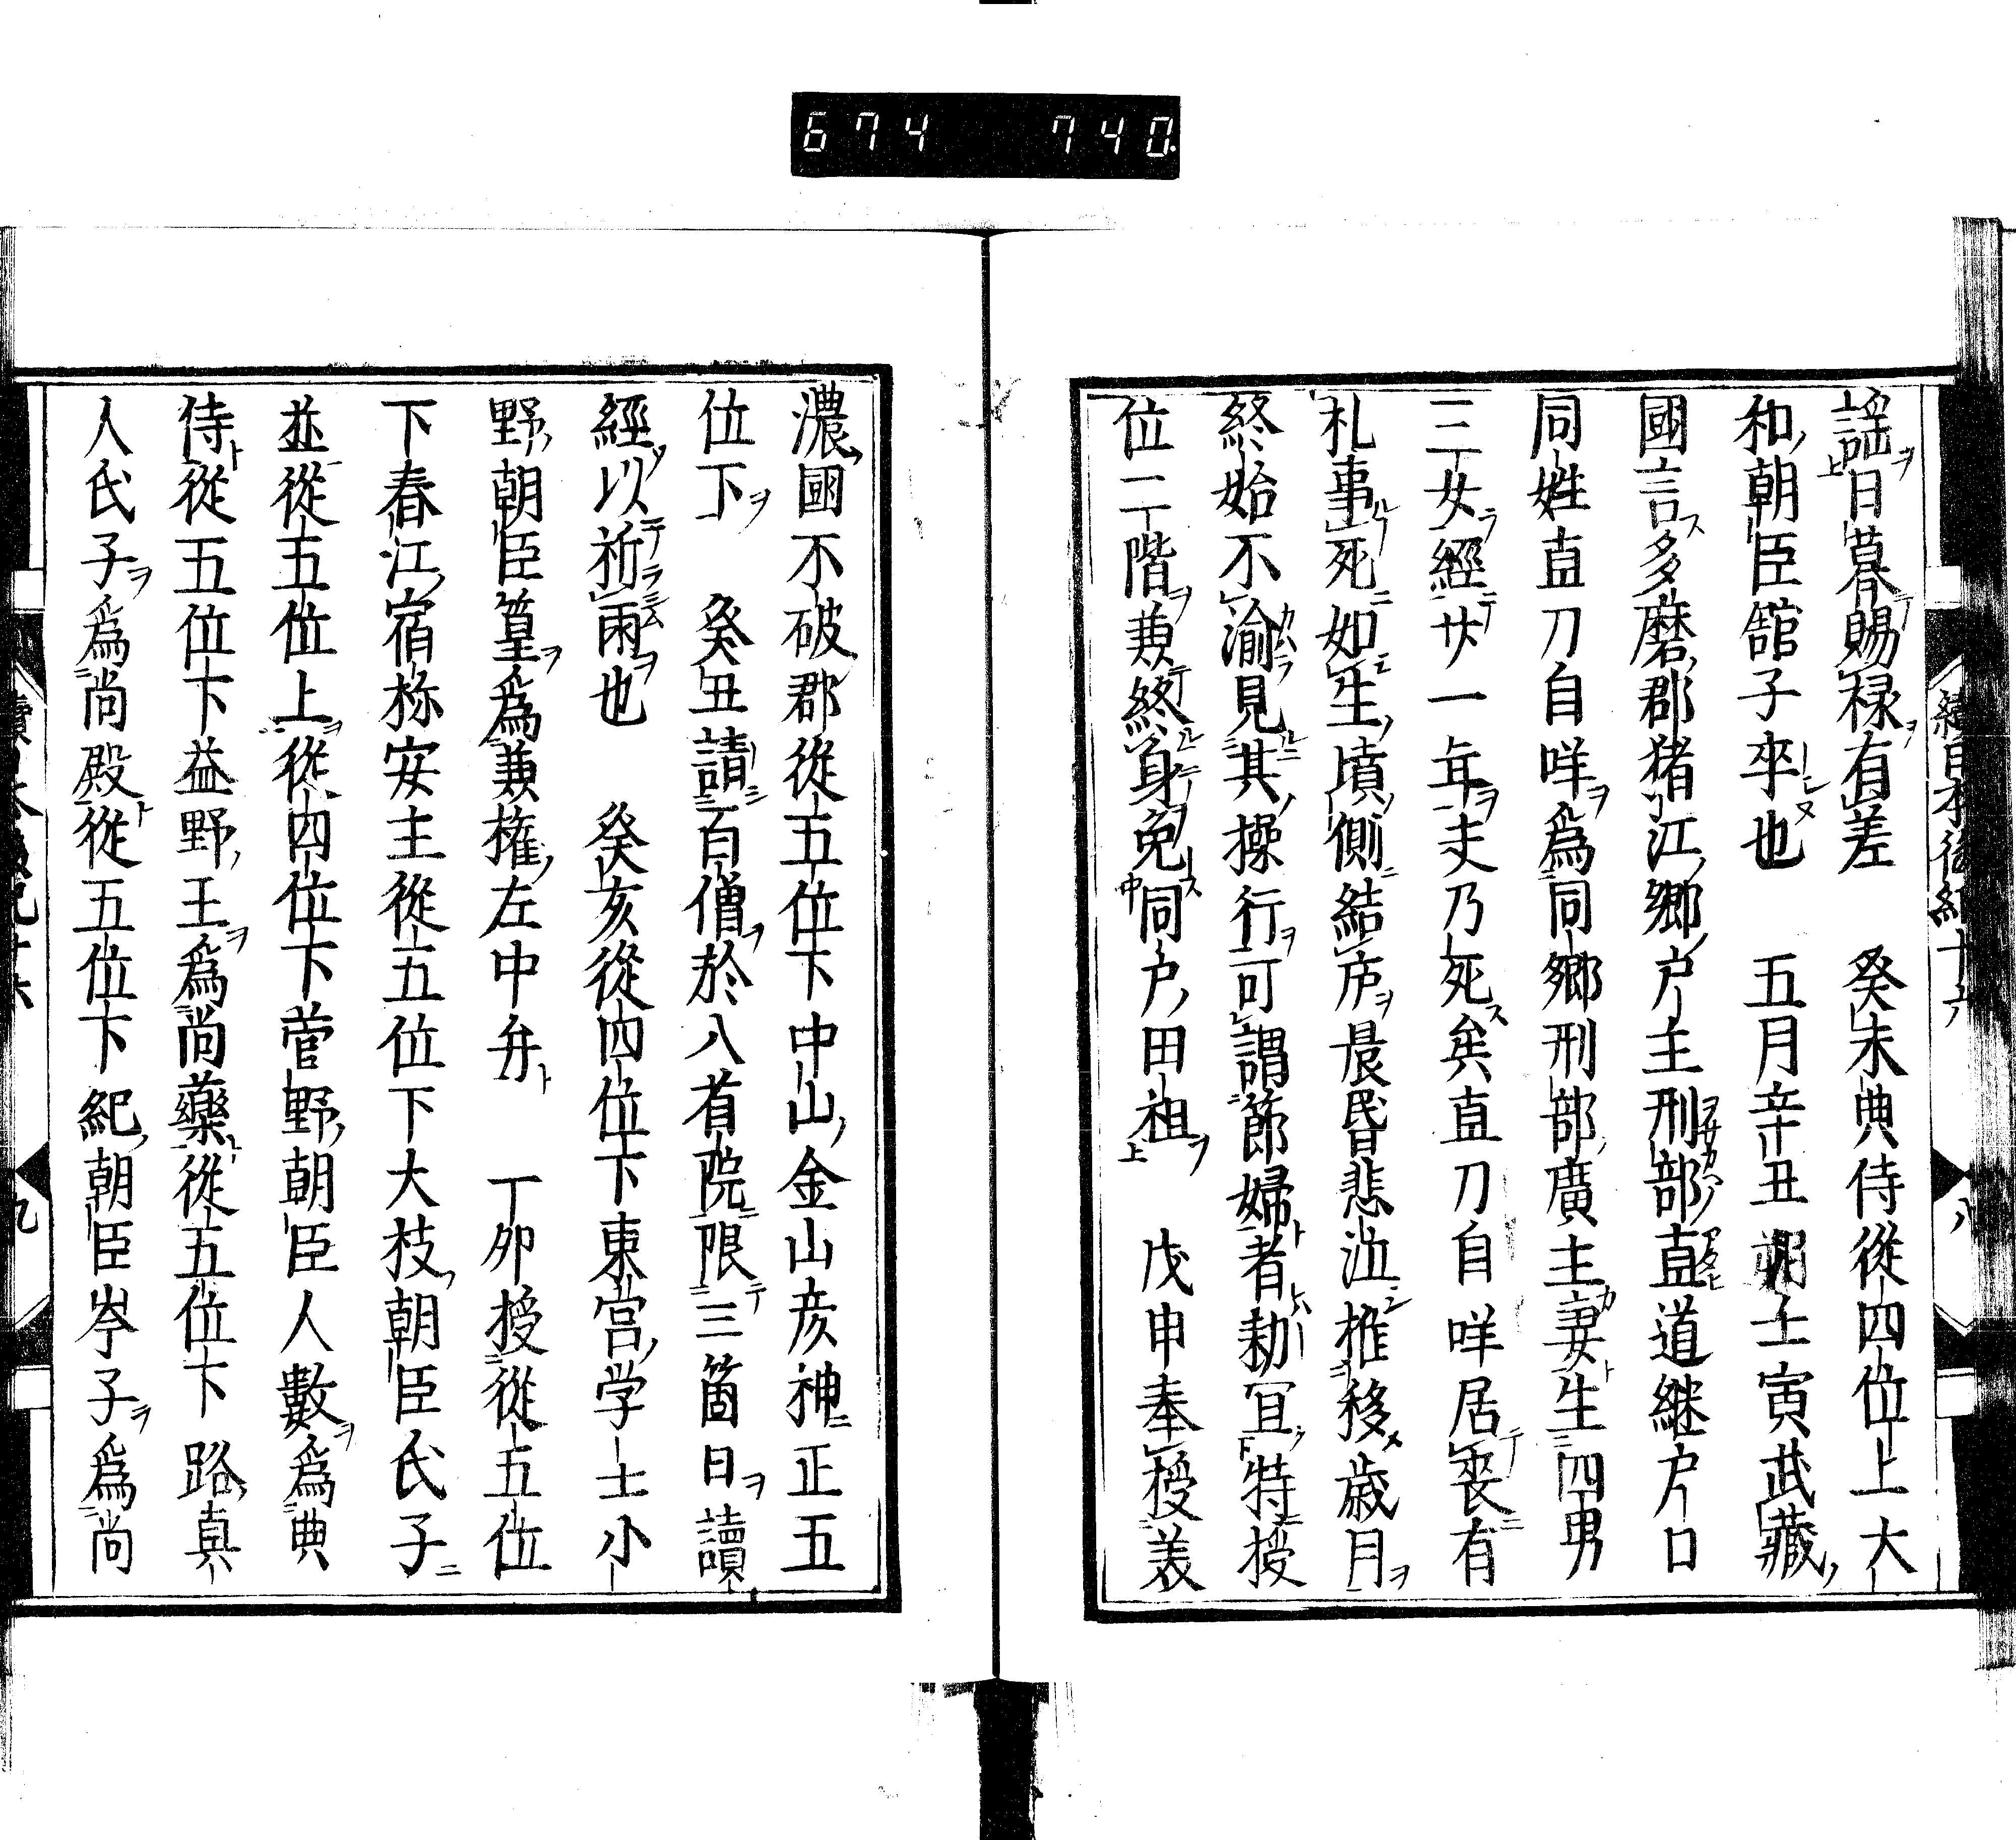 674 740
續日本後紀十六
八
謡日暮賜禄有差 癸未典侍從四位上大
和朝臣舘子卒也 五月辛丑朔壬寅武藏
國言多磨郡猪江郷戸主刑部直道継戸口
同姓直刀自咩爲同郷刑部廣主妻生四男
三女經廿一年夫乃死矣直刀自咩居喪有
札事死如生墳側結庐晨昏悲泣推移歳月
終始不渝見其操行可謂節婦者勅冝特授
位二階兼終身免同戸田租 戊申奉授美
濃國不破郡從五位下中山金山彦神正五
位下 癸丑請百僧於八省院限三箇日讀
經以祈雨也 癸亥從四位下東宮学士小
野朝臣篁爲兼權左中弁 丁卯授從五位
下春江宿祢安主從五位下大枝朝臣氏子
並從五位上從四位下菅野朝臣人數爲典
侍從五位下益野王爲尚藥從五位下路真
人氏子爲尚殿從五位下紀朝臣岑子爲尚
九